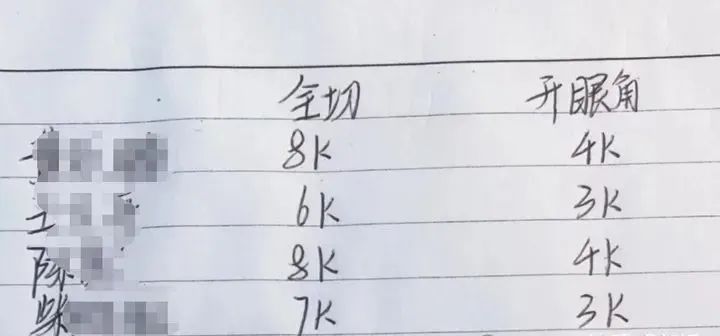 全切 开眼角
8K 4K
6K 3K
8K 4K
柴 7K 3K